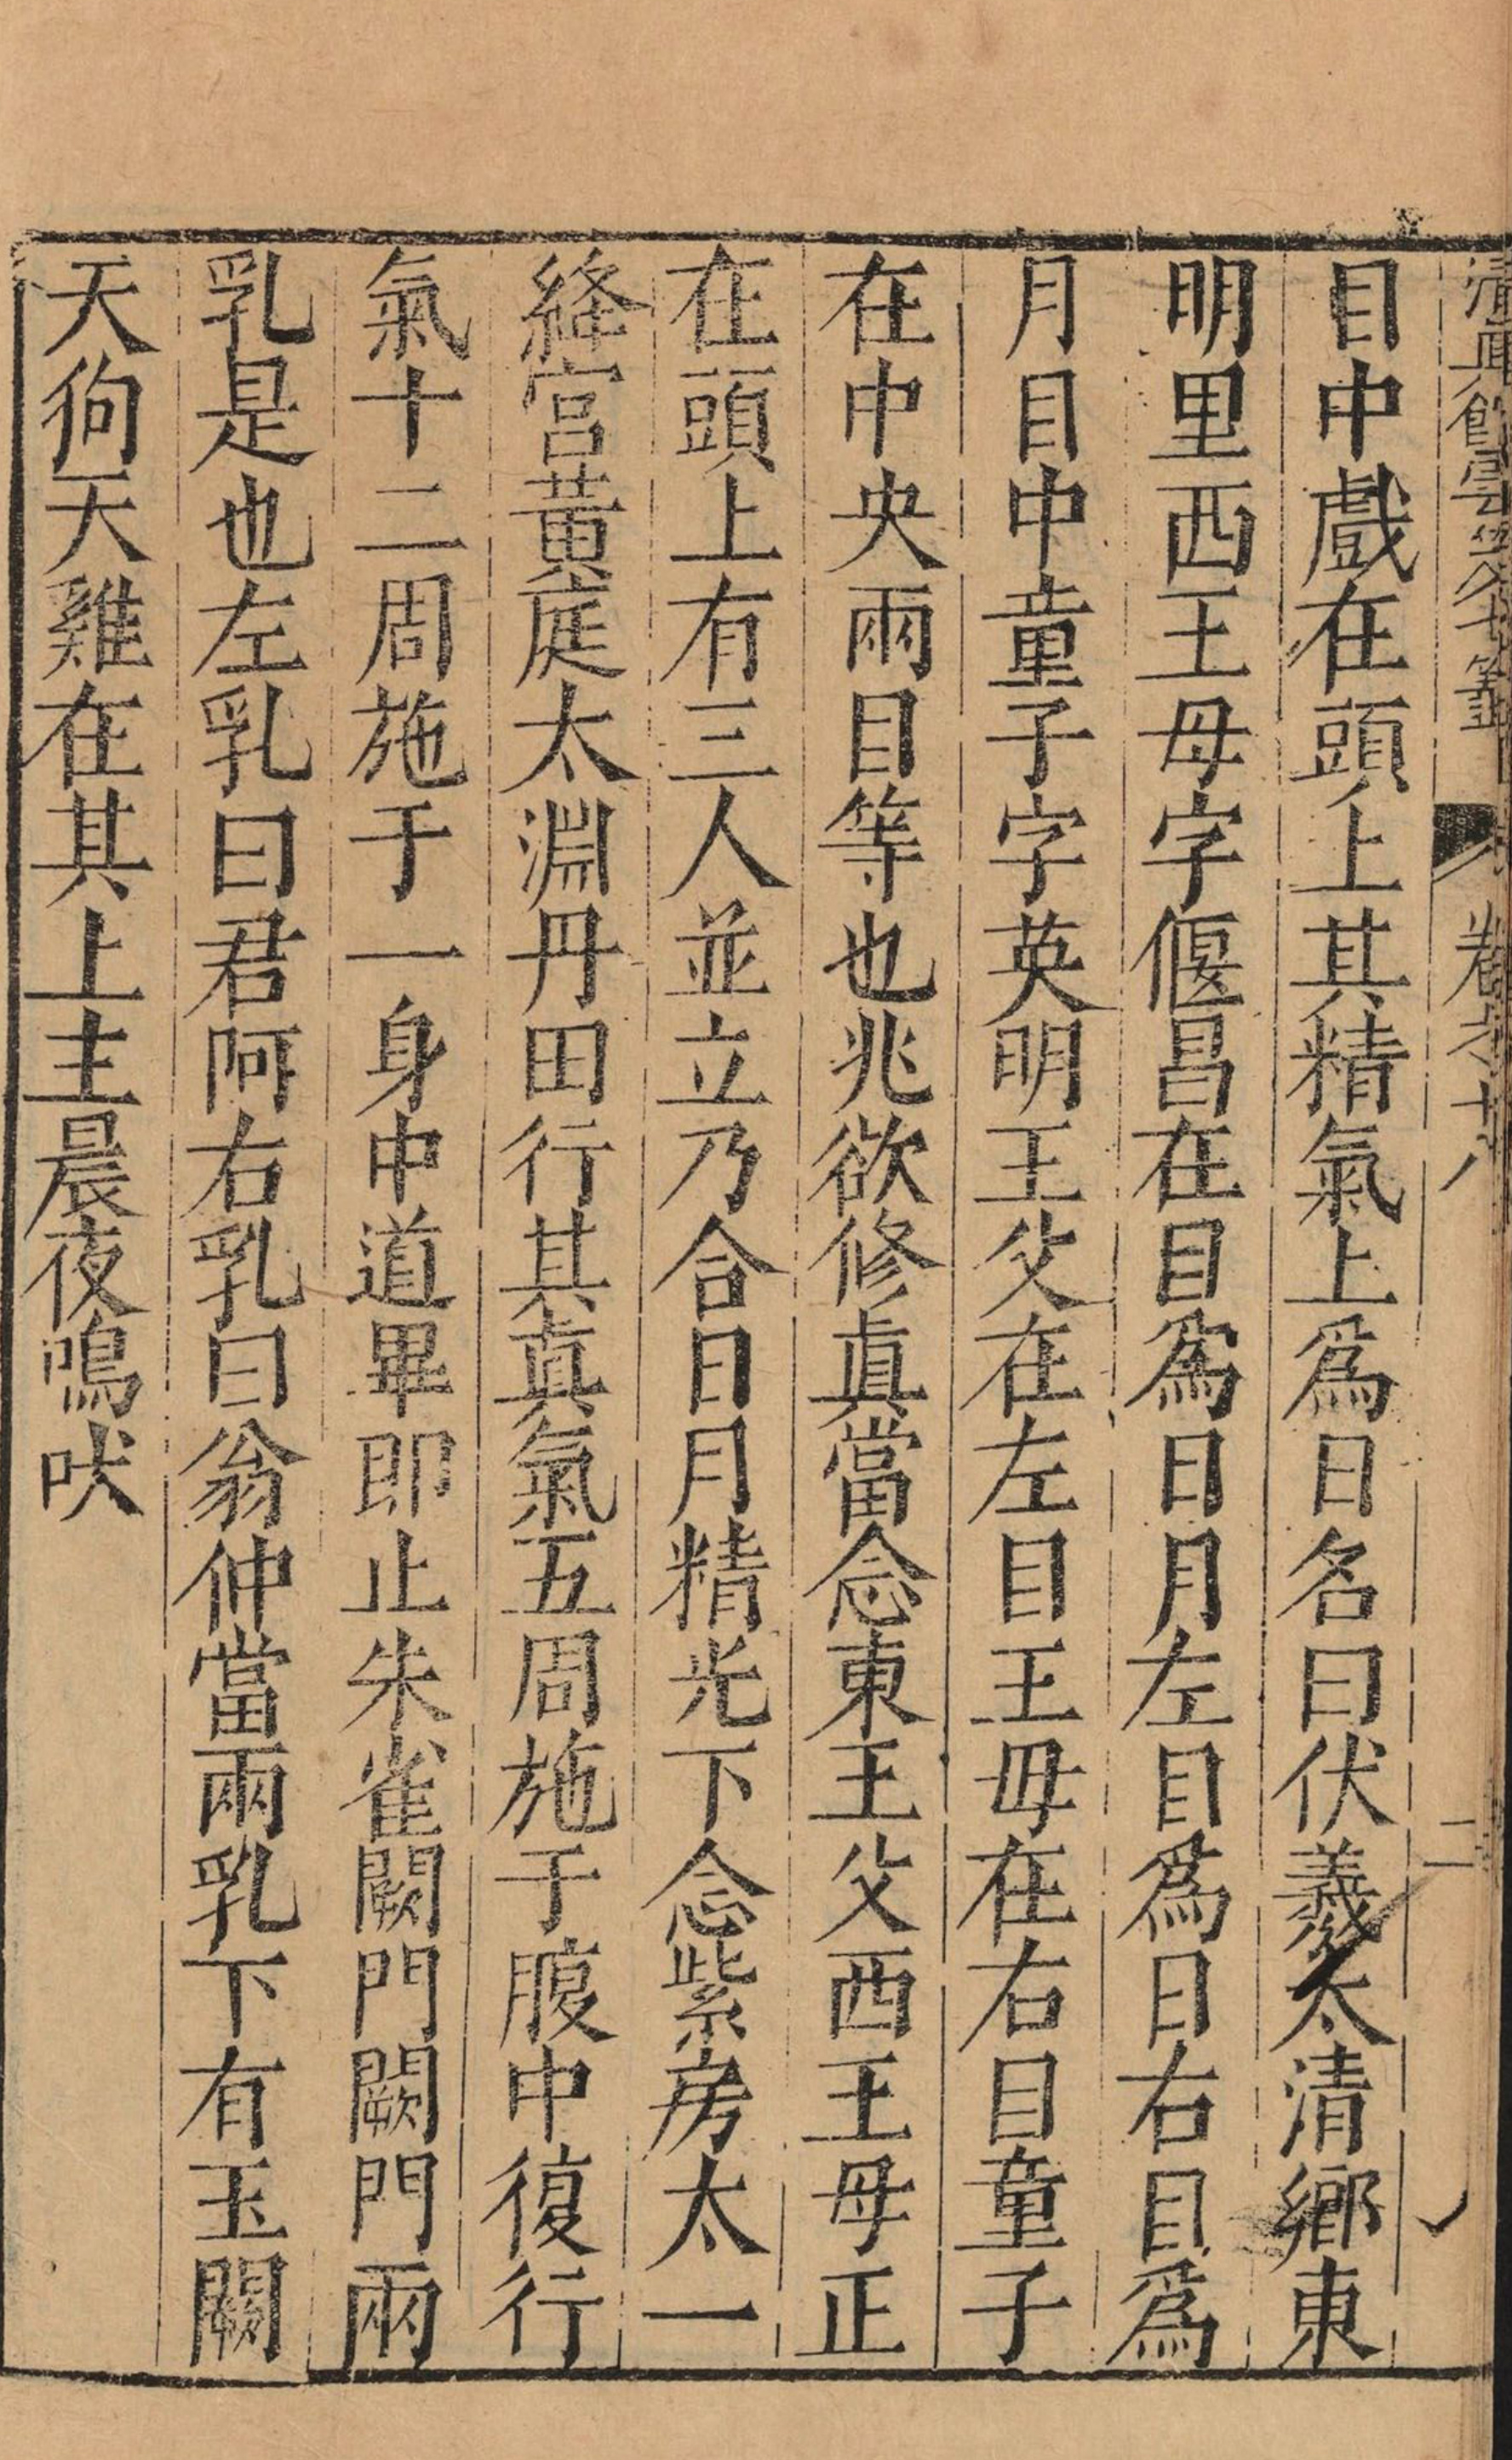 卷之十八
二
目中戲在頭上其精氣上爲日名曰伏羲太清鄉東
明里西王母字偃昌在目爲日月左目爲日右目爲
月目中童子字英明王父在左目王母在右目童子
在中央兩目等也兆欲修眞當念東王父西王母正
在頭上有三人並立乃合日月精光下念紫房太一
絳宮黃庭太淵丹田行其眞氣五周施于腹中復行
氣十二周施于一身中道畢即止朱雀闕門闕門兩
乳是也左乳曰君阿右乳曰翁仲當兩乳下有玉闕
天狗天雞在其上主晨夜鳴吠